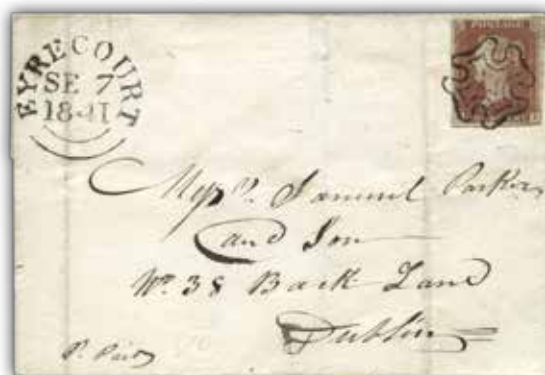 EYRECOURT
SE 7
1841
POSTAGE
Messrs. Samuel Parker
and Son
No. 38 Back Lane
Dublin
P. Paid